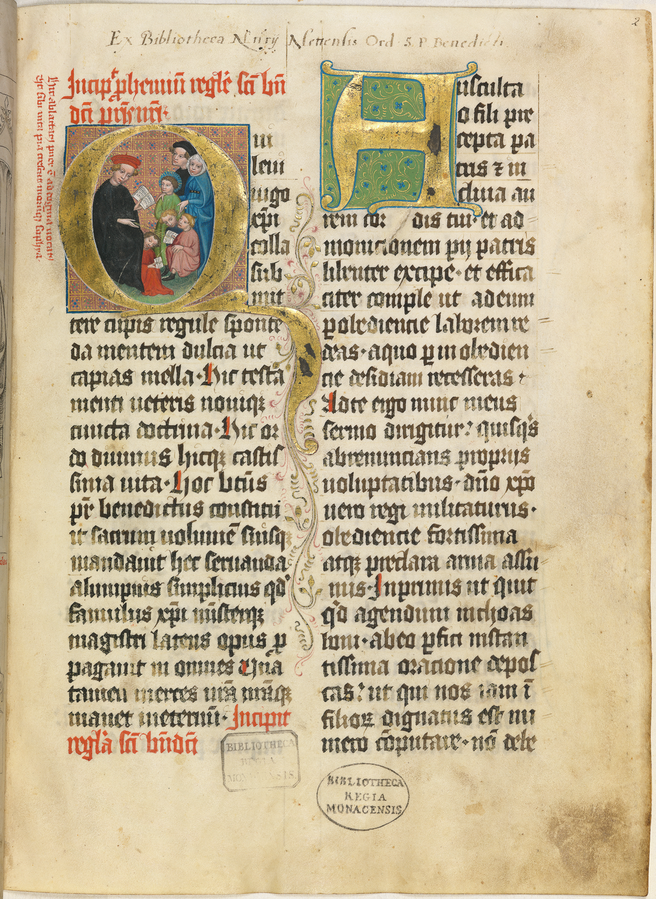 Ex Bibliotheca Mellicensis Ord. S. P. Benedicti
2
Incipit phemiū regle scī bn̄
dcī
Q
ui
leui
iugo
xpi
colla
sub
mit
tere cupis regule sponte
da mentem dulcia ut
capias mella · Hic testa
menti ueteris nouiqꝫ
cuncta doctrina · Hic or
do diuinus hicqꝫ castis
sima uita · Hoc btūs
pr̄ benedictus constitu
it sacrum uolumē suisqꝫ
mandauit hec seruanda
alumpnis simplicius qd̓
famulus xpi mīsterqꝫ
magistri latens opus ꝓ
pagauit in omnes Una
tamen merces
manet ineternū · Incipit
regla scī bn̄dcī
A
usculta
o fili pre
cepta pa
tris ꝛ in
clina au
rem cor dis tui · et ad
monicionem pij patris
libenter excipe · et effica
citer comple ut ad eum
p obediencie laborem re
deas · a quo p inobedien
cie desidiam recesseras ·
Ad te ergo nunc meus
sermo dirigitur quisqs
abrenuncians proprijs
uoluptatibus · dn̄o xp̄o
uero regi militaturus ·
obediencie fortissima
atqꝫ preclara arma assu
mis · Inprimis ut quit
qd̓ agendum inchoas
boni · ab eo pfici instan
tissima oracione depos
cas · ut qui nos iam ī
filioꝝ dignatus est nu
mero cōputare · nō debe
BIBLIOTHECA
REGIA
MONACENSIS
BIBLIOTHECA
REGIA
MONACENSIS